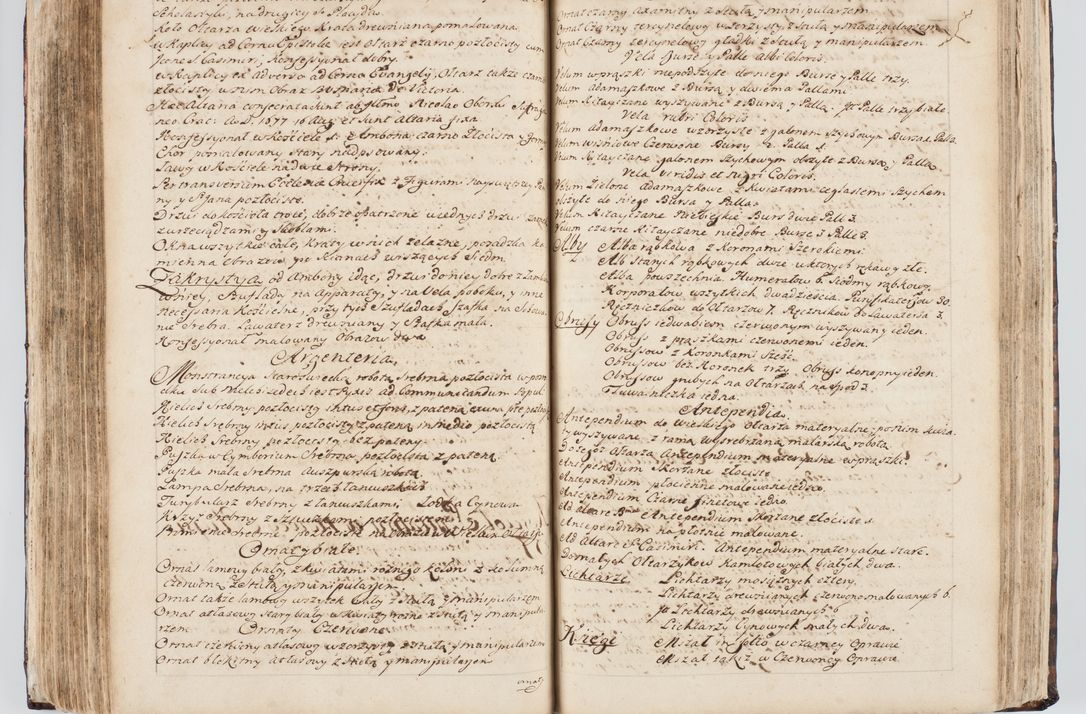 Scholastyki, na drugiey S. Placyda.
Koło Ołtarza Wielkiego Krata drewniana pomalowana.
w Kaplicy ad Cornu Epistolae iest Ołtarz czarno pozłocisty cum
Icone S. Casimiri, Konfessyonał dobry.
w Kaplicy ex adverso ad Cornu Evangelij, Ołtarz także czarno
złocisty w nim Obraz B. Maria de Victoria.
Haec Altaria consecrata sunt ab Illmo Nicolao Oborski Suffraga
neo Crac: A. D. 1677 16 Aug. et sunt Altaria fixa.
Konfessyonał w Kościele 1. Ambona czarno złocista
Chor pomalowany stary nadpsowany.
Ławy w Kościele na dwie strony.
Per transversum Ecclesiae Crucifix z Figurami Nayświętszey Pan
ny y S. Jana pozłociste.
Drzwi do Kościoła troie, dobrze opatrzone u iednych drzwi zamek
zwrzeciądzami y Skoblami.
Okna wszytkie całe, Kraty w nich żelazne, posadzka ka
mienna Obrazow po scianach wiszących Siedm.
Zakrystya od Ambony idąc, drzwi do niey dobre z Zamkiem
w niey, Buflady na Apparaty, y na Vela poboku, y inne
necessaria Kościelne, przy tych Szufladach Szafka na chowa
nie srebra. Lawaterz Drewniany y Szafka mała.
Konfessyonał malowany Obrazow dwa
Argenteria.
Monstrancya Staroswiecką robotą srebrna pozłocista w pro
Kielich srebrny pozłocisty intus et foris, z pateną
Kielich srebrny intus pozłocisty z pateną in medio pozłocistą
Kielich Srebrny pozłocisty bez pateny.
Puszka w Cymborium Srebrna pozłocista z pateną
Puszka mała srebrna Auszpurską robotą.
Lampa srebrna, na trzech łancuszkach
Turybularz srebrny z łancuszkami, Łodka Cynowa
Krzyż srebrny
Ornaty białe.
Ornat lamowy biały z kwiatami rożnego koloru z kolumną
czerwoną z stułą y manipularzem.
Ornat także lamowy wszytek biały z stułą y manipularzem
Ornat atłasowy stary biały w kwiaty rożne z stułą y manipula
rzem. Ornaty Czerwone
Ornat czerwony atłasowy wzorzysty z stułą y manipularzem
Ornat blekitny atłasowy z stułą y manipularzem
Ornat
Ornat czarny axamitny z stułą y manipularzem.
Ornat Czarny tercynelowy wzorzysty z stułą y manipularzem
Ornat Czarny tercynelowy gładki z stułą y manipularzem
Vela Bursae y Palle albi Coloris.
Velum w prążki niepodszyte do niego Bursa y Palle trzy.
Velum adamaszkowe z Bursą y dwiema Pallami
Velum Kitayczane wyszywane z Bursą y Pallą. It. Palle trzy białe
Vela rubri Coloris
Velum adamaszkowe wzorzyste z galonem szychowym Bursa 1. Palla.
Velum wiśniowe Czerwone Bursy 2. Palla 1.
Velum Kitayczane galonem Szychowym obszyte z Bursą y Pallą
Vela viridis et nigri Coloris.
Velum Zielone adamaszkowe z kwiatami ceglastemi Szychem
obszyte do niego Bursa y Palla.
Velum Kitayczane Niebieskie Burs dwie Pall 3.
Velum czarne Kitayczane niedobre Burse 3 Palle 3.
Alby Alba rąbkowa z Koronami Szerokiemi.
Alb starych rąbkowych dwie u ktorych rękawy złe.
Alba powszechnia. Humerałow 6. Siodmy rąbkowy.
Korporałow wszytkich dwadziescia. Puryfikaterzow 30.
Ręczniczkow do Ołtarzow 7. Ręcznikow do Lawaterza 3.
Obrusy Obrus iedwabiem czerwonym wyszywany ieden.
Obrus z ptaszkami czerwonemi ieden.
Obrusow z Koronkami Sześć.
Obrusow bez Koronek trzy. Obrus Konopny ieden.
Obrusow grubych na Ołtarzach na spod 2.
Tuwalniczka iedna.
Antependia.
Antependium do wielkiego Ołtarza materyalne, postum
ty wyszywane z ramą wysrebrzaną malarską robotą.
Do tegoż Ołtarza Antependium materyalne w prążki.
Antependium Skorzane złociste
Antependium płocienne malowane iedno.
Antependium Czarne iedno.
Ad altare Antependium Skorzane złociste 1.
Antependium na płotnie malowane.
Ad Altare S. Casimiri. Antependium materyalne stare.
Do małych Ołtarzykow Kamlotowych białych dwa.
Lichtarze Lichtarzy mosiężnych cztery.
Lichtarzy drewnianych czerwono malowanych 6.
It. Lichtarzy drewnianych 6
Lichtarzy Cynowych małych dwa.
Xięgi Mszał in folio w czarney Oprawie
Mszał takiż w Czerwoney Oprawie